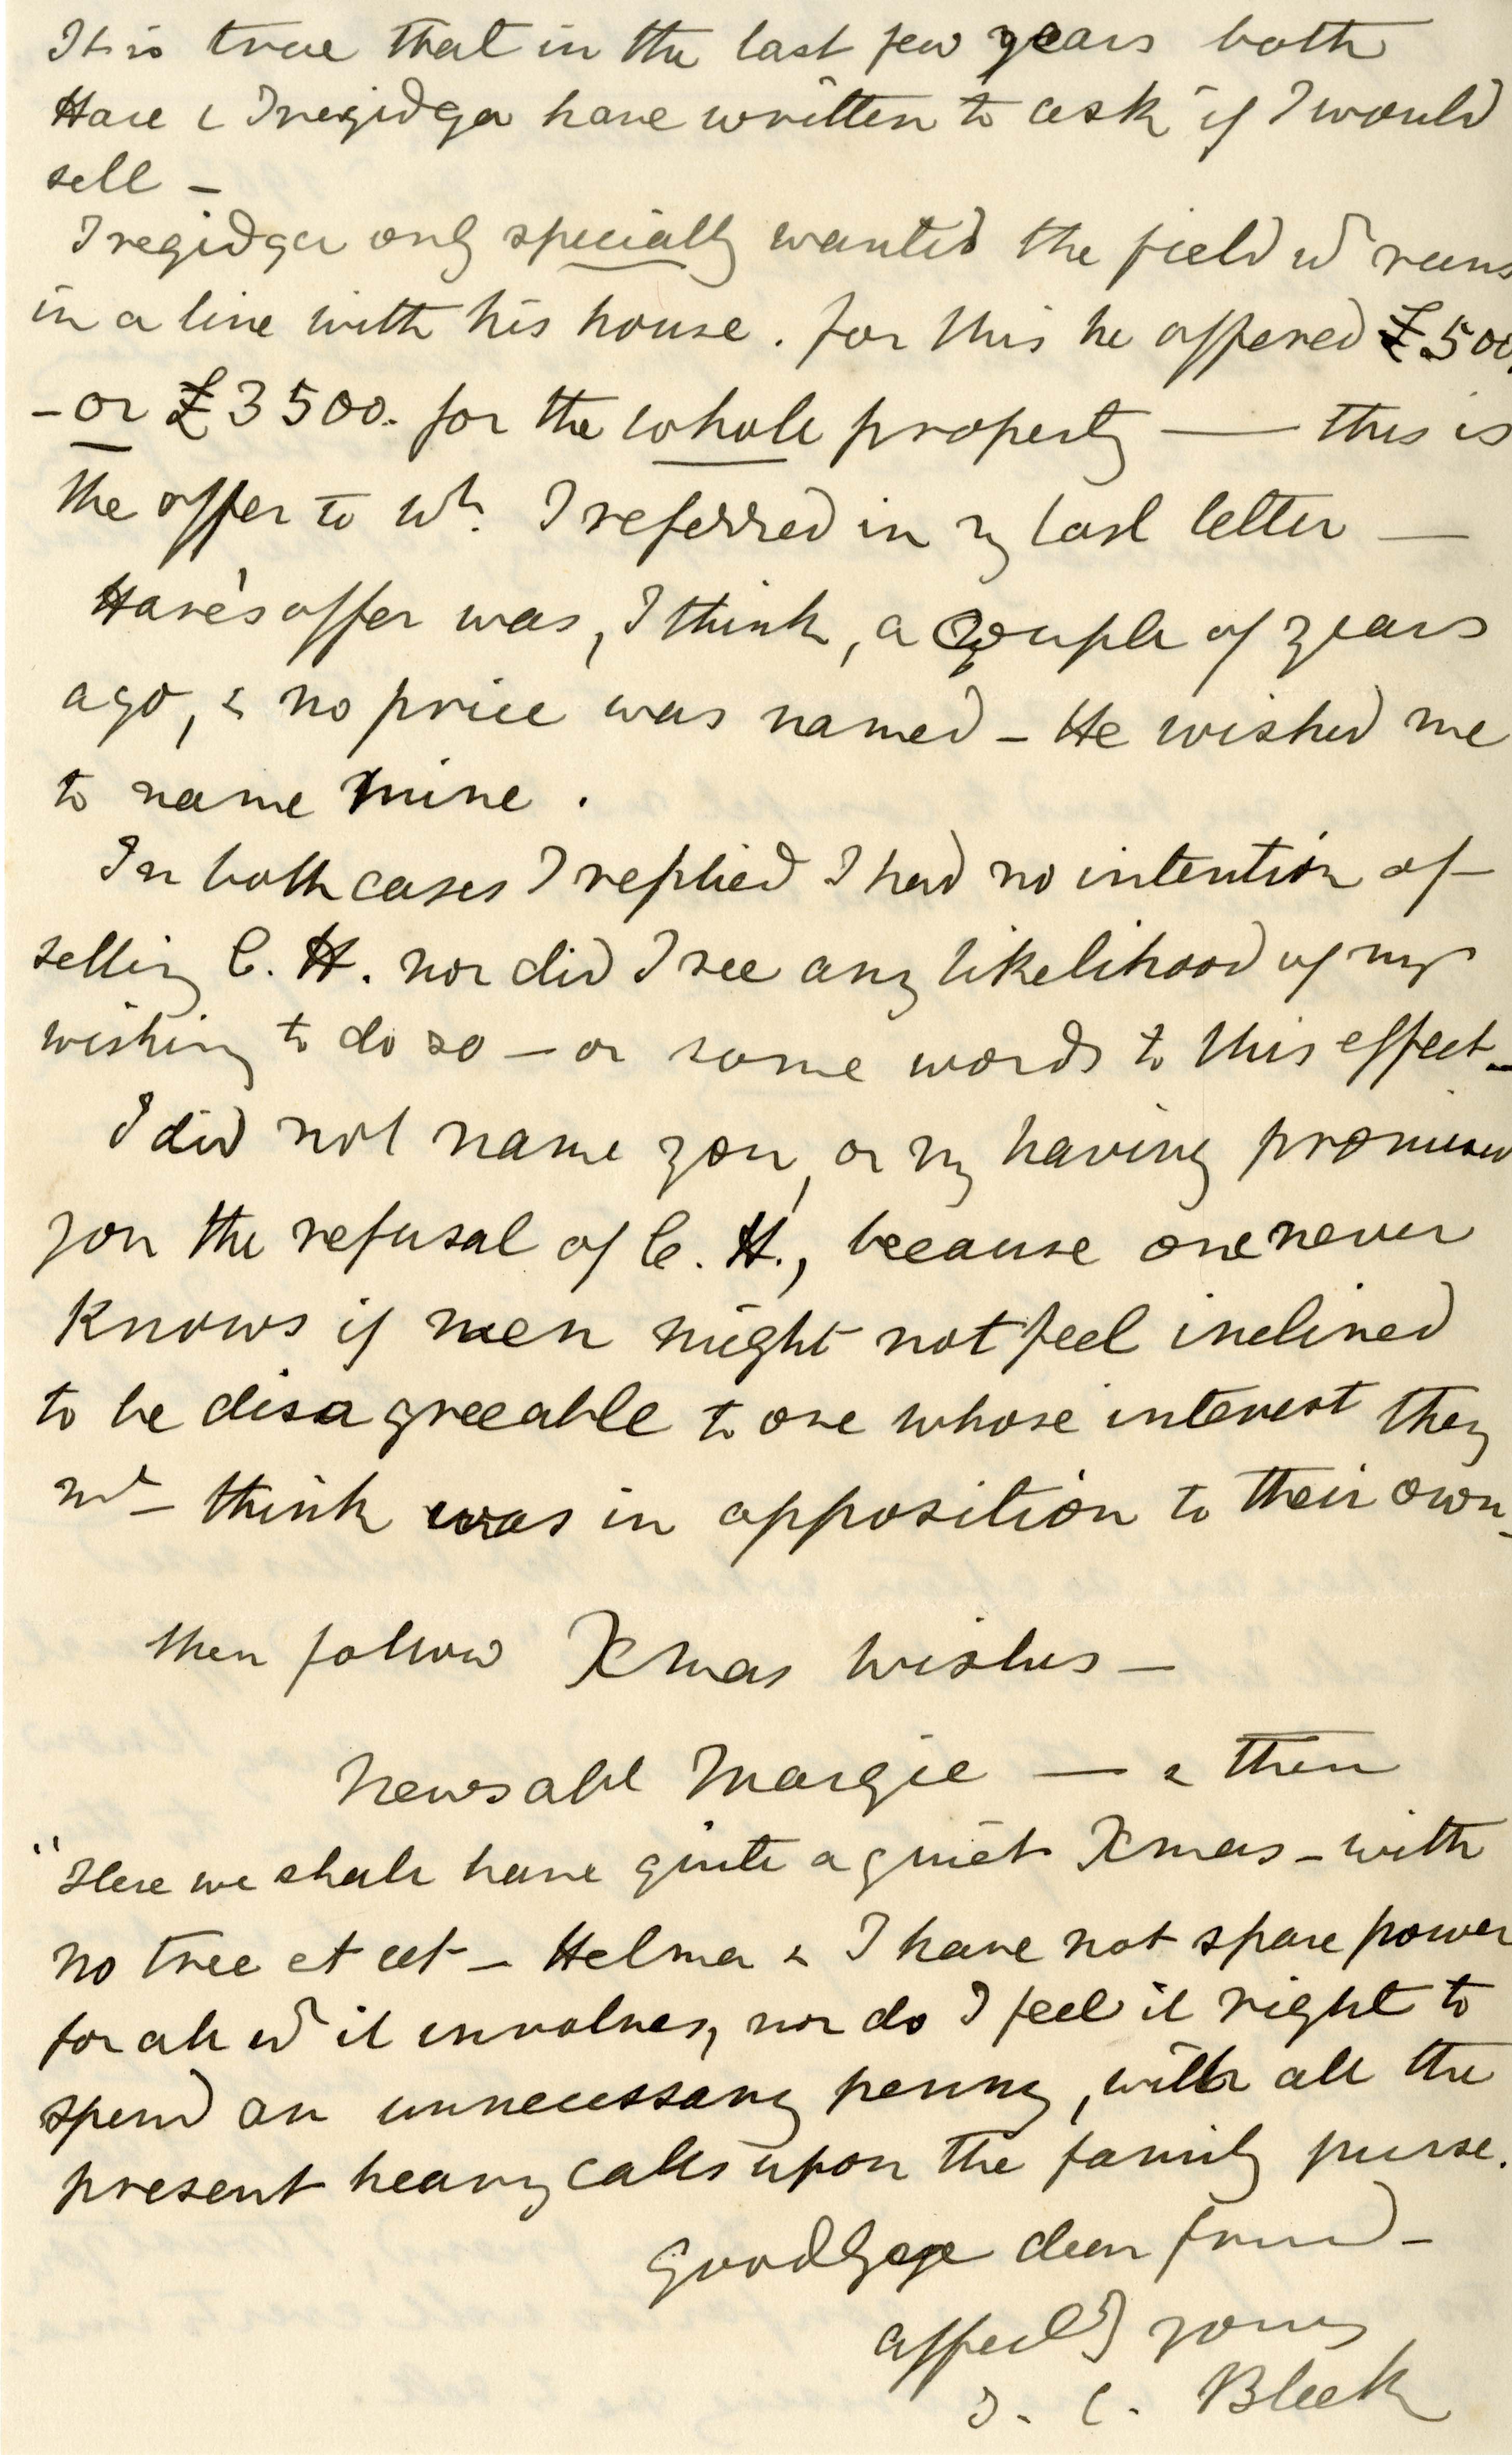 It is true that in the last few years both
Hare & Tregidga have written to ask if I would
sell –
Tregidga only specially wanted the field wd runs
in a line with his house. for this he offered £500,
– or £3500. for the whole property — this is
the offer to wh. I referred in my last letter —
Hare's offer was, I think, a couple of years
ago, & no price was named – He wished me
to name mine.
In both cases I replied I had no intention of
selling C. H. nor did I see any likelihood of my
wishing to do so – or some words to this effect –
I did not name you, or my having promised
you the refusal of C. H., because one never
knows if men might not feel inclined
to be disagreeable to one whose interest they
mt – think was in opposition to their own –
then follow Xmas wishes –
News abt Margie — & then
"Here we shall have quite a quiet Xmas – with
no tree et cet – Helma & I have not spare power
for all wd it involves, nor do I feel it right to
spend an unnecessary penny, with all the
present heavy calls upon the family purse.
Goodbye dear friend –
affectly yours
J. C. Bleek